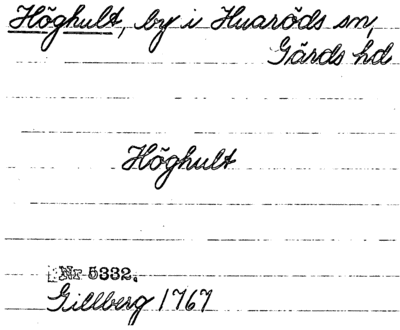 Höghult, by i Huaröds sn,
Gärds hd
Höghult
Nr 5332.
Gillberg 1767